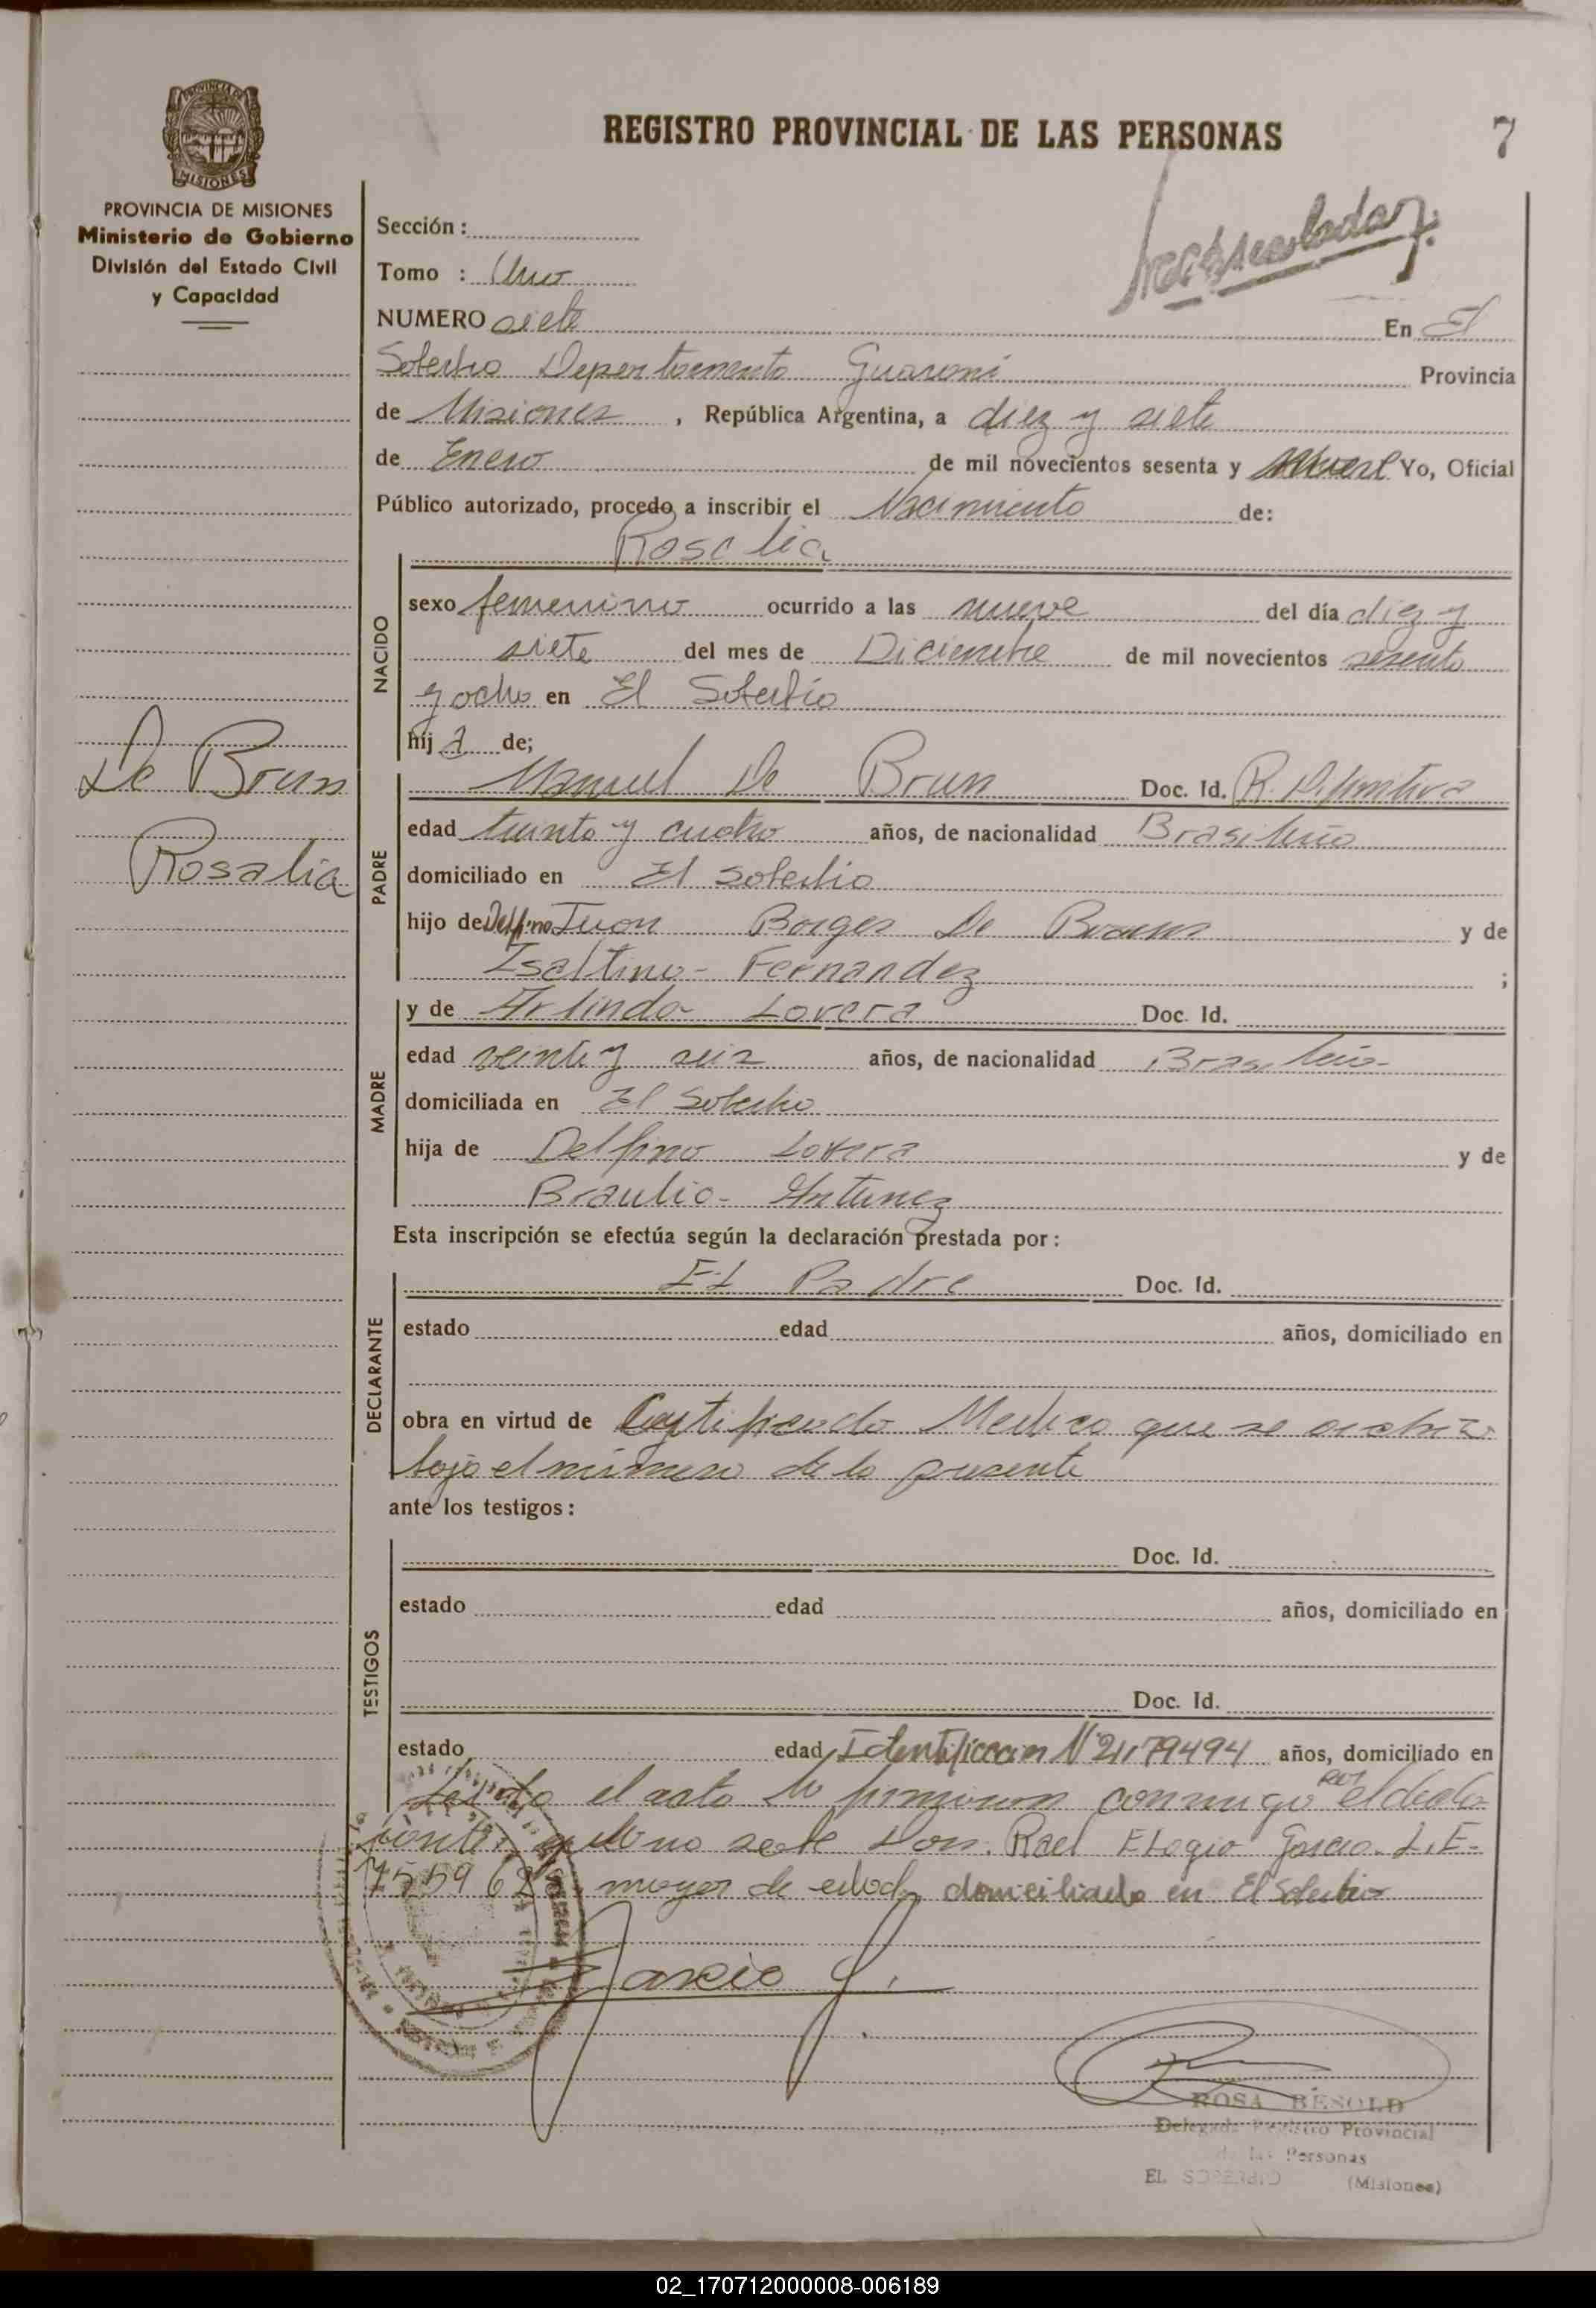 REGISTRO PROVINCIAL DE LAS PERSONAS
7
MISIONES
PROVINCIA DE MISIONES
Ministerio de Gobierno
División del Estado Civil
y Capacidad
Sección:
Tomo : Uno
NUMERO siete En El
Soberbio Departamento Guarani Provincia
de Misiones, República Argentina, a diez y siete
de Enero de mil novecientos sesenta y nueve Yo, Oficial
Público autorizado, procedo a inscribir el Nacimiento de:
Rosalia
NACIDO
sexo femenino ocurrido a las nueve del día diez y
siete del mes de Diciembre de mil novecientos sesenta
y ocho en El Soberbio
hij a de;
De Brum
Rosalia
PADRE
Manuel De Brum Doc. Id. R. Difinitiva
edad treinta y cuatro años, de nacionalidad Brasileño
domiciliado en El Soberbio
hijo de Delfino Juan Borges De Brum y de
Isaltino- Fernandez ;
MADRE
y de Arlinda- Lovera Doc. Id.
edad veinte y seis años, de nacionalidad Brasileño-
domiciliada en El Soberbio
hija de Delfino Lovera y de
Braulio- Antunez
Esta inscripción se efectúa según la declaración prestada por:
DECLARANTE
El Padre Doc. Id.
estado edad años, domiciliado en
obra en virtud de Certificado Medico que se archiva
bajo el número de la presente
ante los testigos:
TESTIGOS
Doc. Id.
estado edad años, domiciliado en
Doc. Id.
estado edad Identificacion Nº 21179494 años, domiciliado en
Leido el acta lo firmaron conmigo por el decla-
rante, que no sabe Don. Rael Elogio Garcia. L.E-
7559 62 mayor de edad, domiciliado en El Soberbio
Garcio
ROSA BESOLD
Delegada Registro Provincial
de las Personas
EL SOBERBIO (Misiones)
02_170712000008-006189